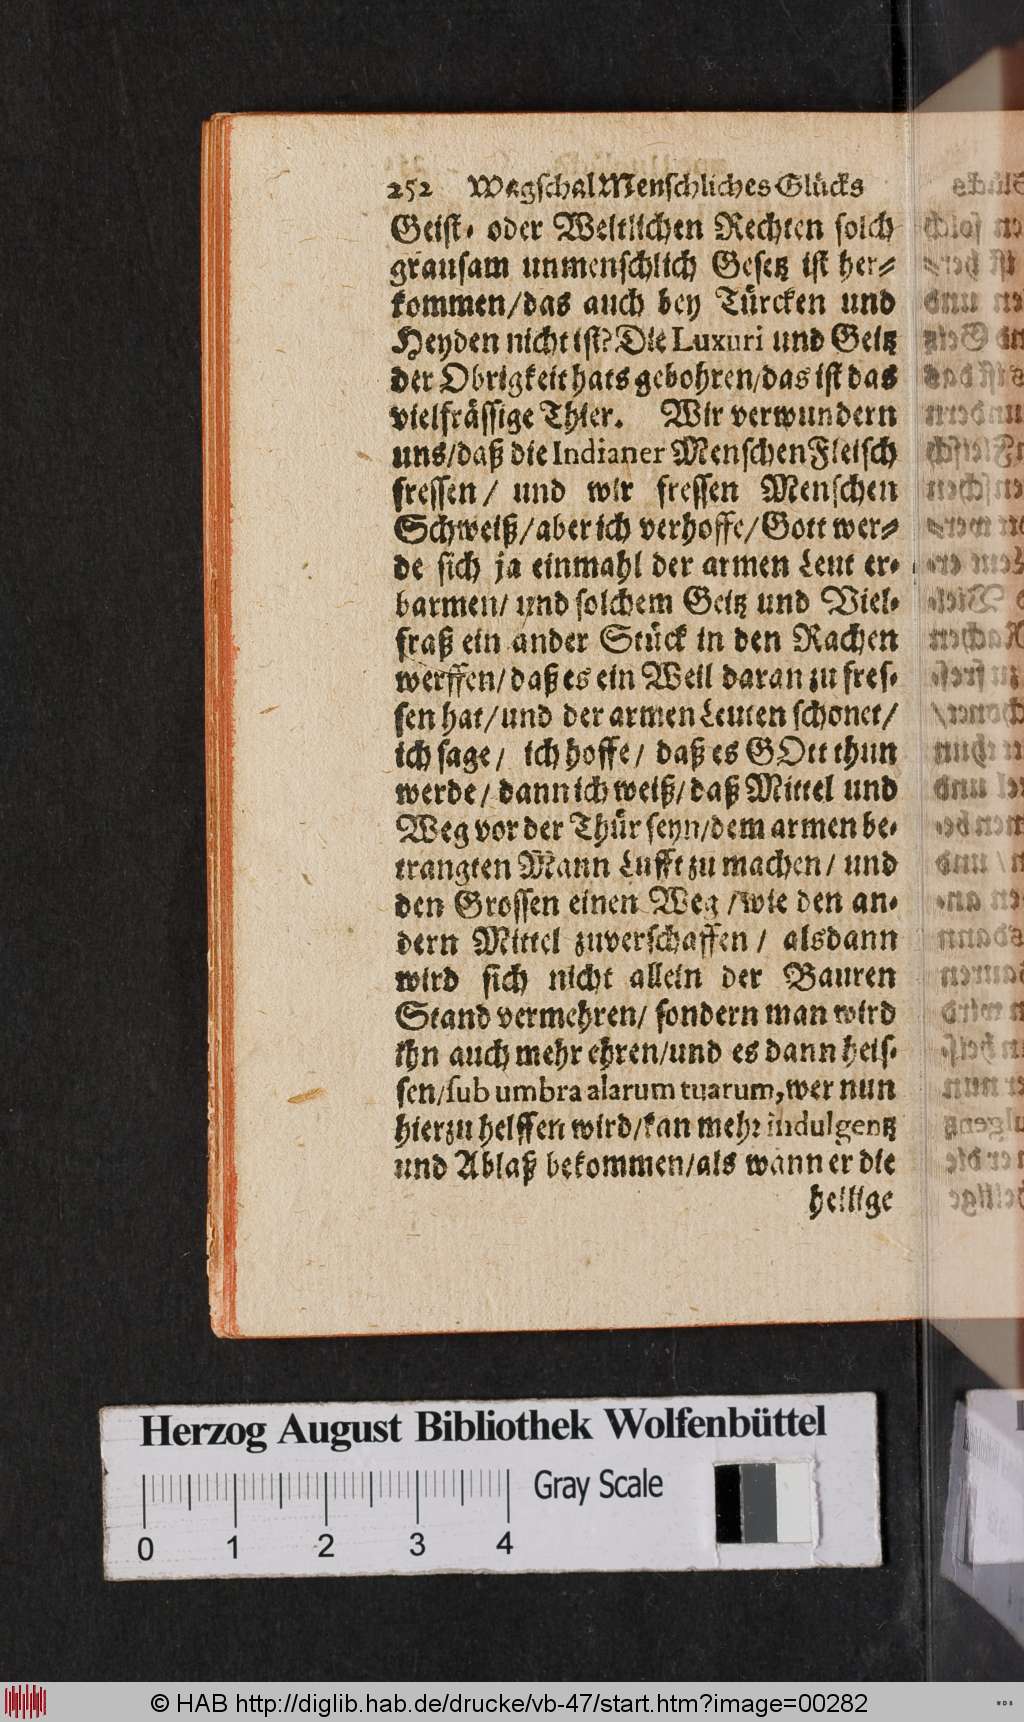 252 Wagschal Menschliches Glücks
Geist- oder Weltlichen Rechten solch
grausam unmenschlich Gesetz ist her-
kommen/das auch bey Türcken und
Heyden nicht ist? Die Luxuri und Geitz
der Obrigkeit hats gebohren/das ist das
vielfrässige Thier. Wir verwundern
uns/daß die Indianer Menschen Fleisch
fressen/ und wir fressen Menschen
Schweiß/aber ich verhoffe/Gott wer-
de sich ja einmahl der armen Leut er-
barmen/ und solchem Geitz und Viel-
fraß ein ander Stück in den Rachen
werffen/daß es ein Weil daran zu fres-
sen hat/und der armen Leuten schonet/
ich sage/ ich hoffe/ daß es GOtt thun
werde/dann ich weiß/daß Mittel und
Weg vor der Thür seyn/dem armen be-
trangten Mann Lufft zu machen/ und
den Grossen einen Weg/wie den an-
dern Mittel zuverschaffen/ alsdann
wird sich nicht allein der Bauren
Stand vermehren/ sondern man wird
ihn auch mehr ehren/und es dann heis-
sen/sub umbra alarum tuarum, wer nun
hierzu helffen wird/kan mehr indulgentz
und Ablaß bekommen/als wann er die
heilige
Herzog August Bibliothek Wolfenbüttel
Gray Scale
0 1 2 3 4
© HAB http://diglib.hab.de/drucke/vb-47/start.htm?image=00282